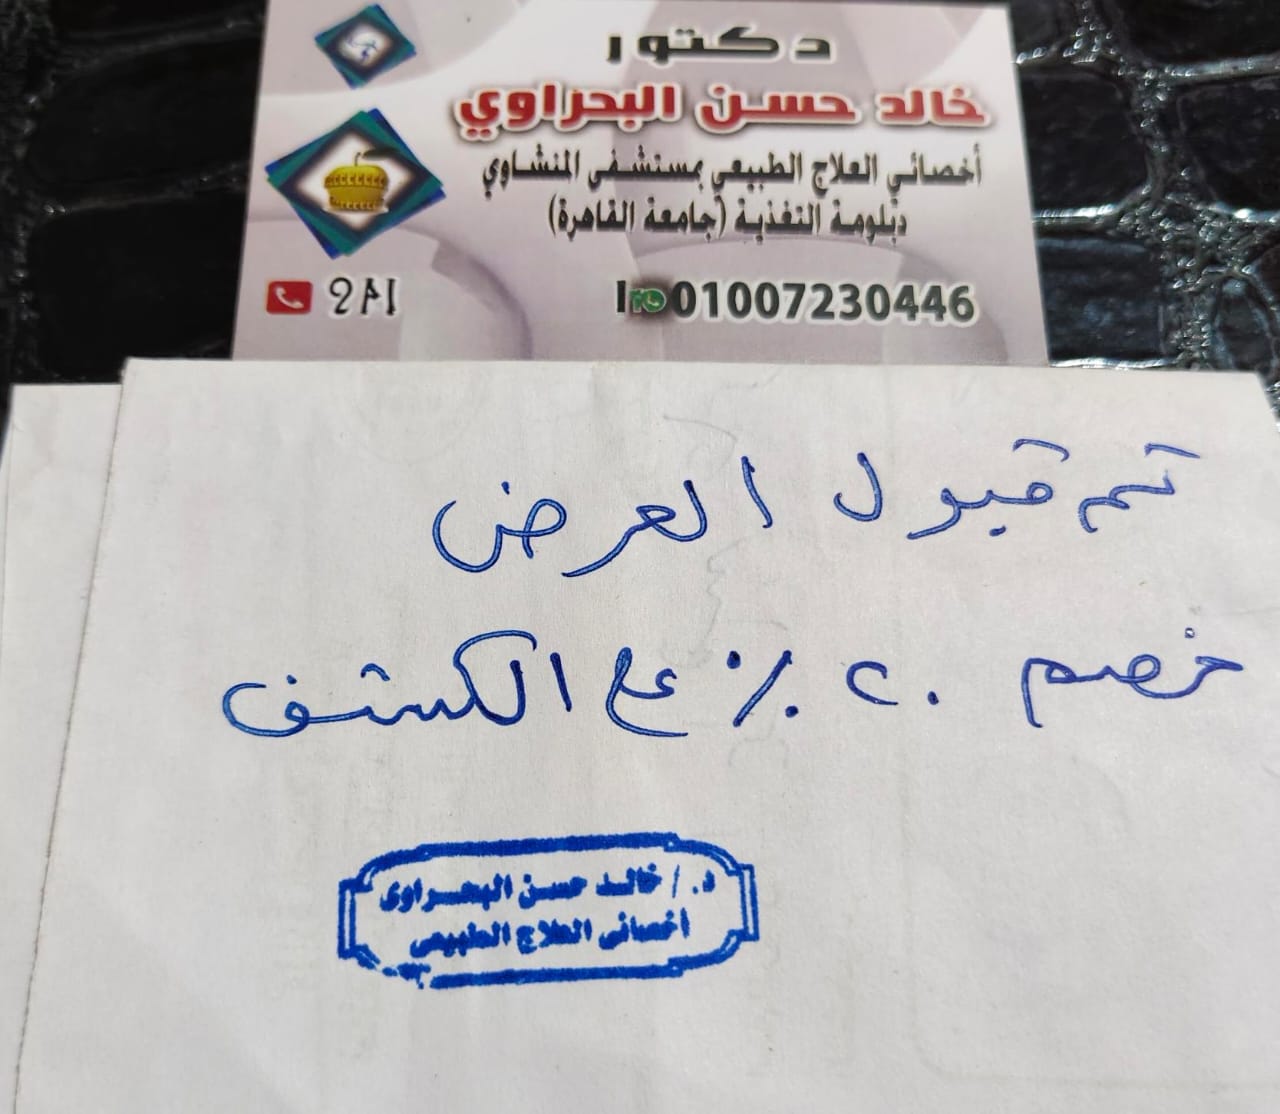 دكتور
خالد حسن البحراوي
أخصائي العلاج الطبيعي بمستشفى المنشاوي
دبلومة التغذية (جامعة القاهرة)
01007230446
تم قبول العرض
خصم ٢٠٪ على الكشف
د. / خالد حسن البحراوى
أخصائى العلاج الطبيعى